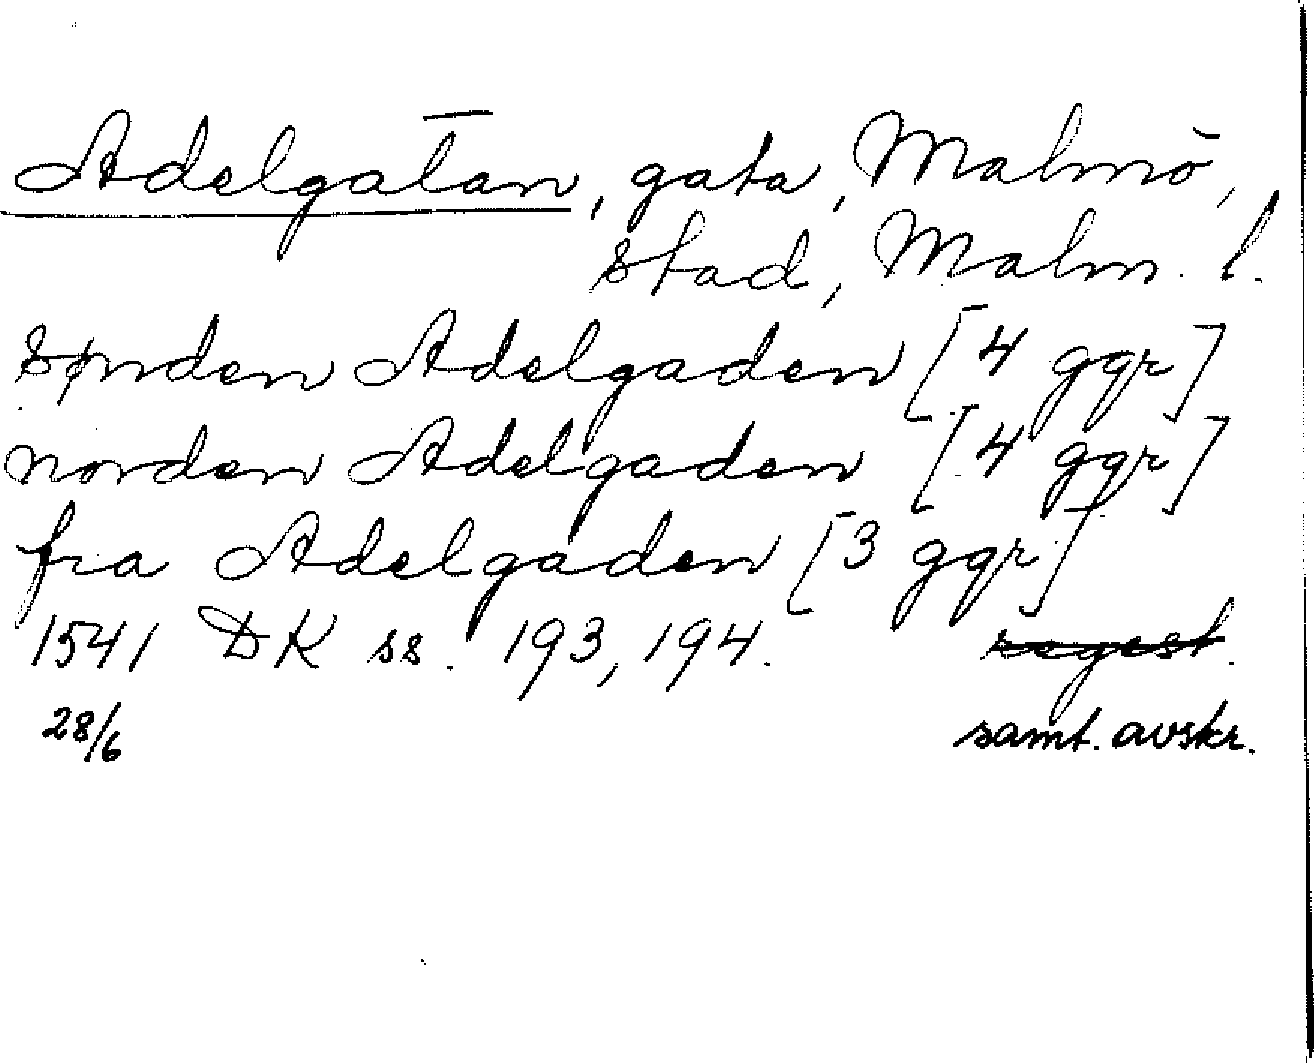 Adelgatan, gata, Malmö,
stad, Malm. l.
sønden Adelgaden [4 ggr]
norden Adelgaden [4 ggr]
fra Adelgaden [3 ggr]
1541 DK ss. 193, 194. regest.
28/6 samt. avskr.